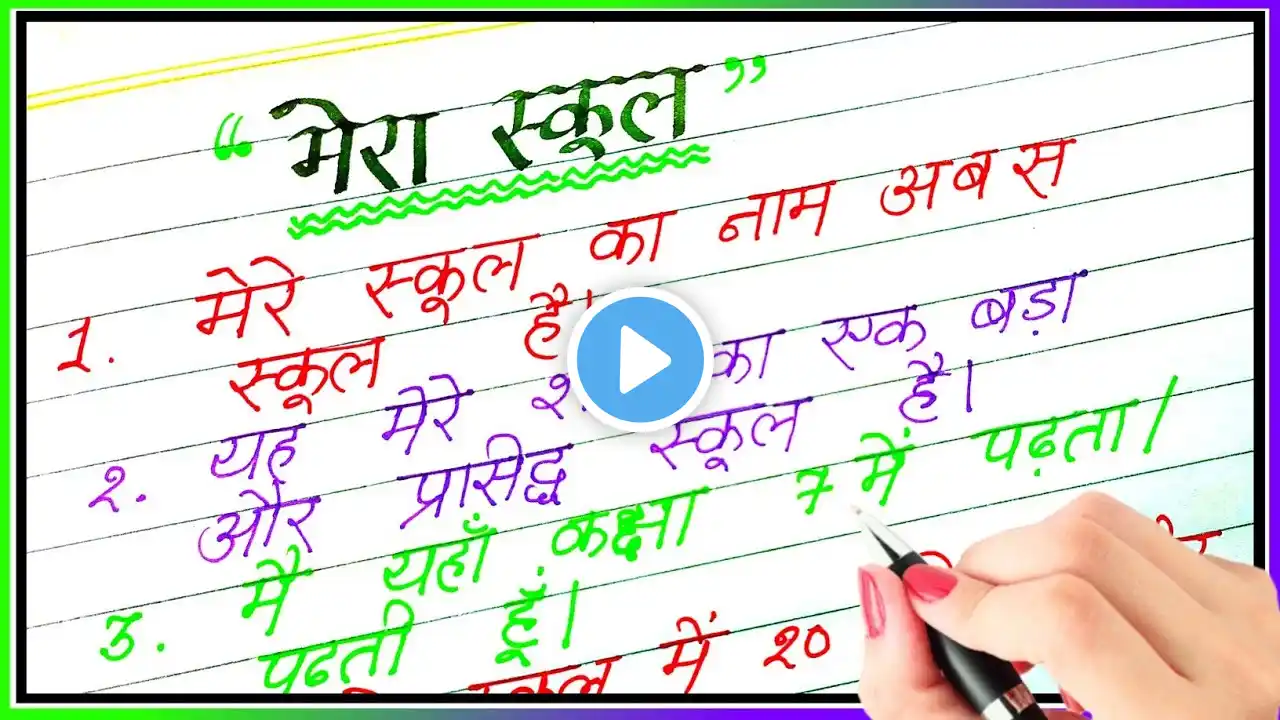 “ मेरा स्कूल ”
1. मेरे स्कूल का नाम अबस
स्कूल है।
२. यह मेरे का एक बड़ा
और प्रासिद्ध स्कूल है।
3. मै यहाँ कक्षा 7 में पढ़ता।
पढती हूँ।
स्कूल में २०